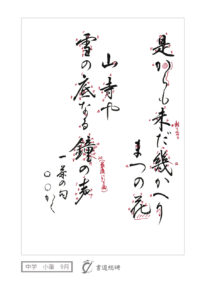 是からも未だ幾かへり
まつの花
山寺や
雪の底なる鐘の声
一茶の句
〇〇かく
中学 小筆 9月
書道総碑